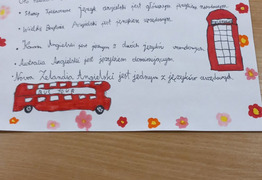 • Stany Zjednoczone język angielski jest głównym językiem narodowym.
• Wielka Brytania Angielski jest językiem urzędowym.
• Kanada Angielski jest jednym z dwóch języków urzędowych.
• Australia Angielski jest językiem dominującym
• Nowa Zelandia Angielski jest jednym z języków urzędowych.